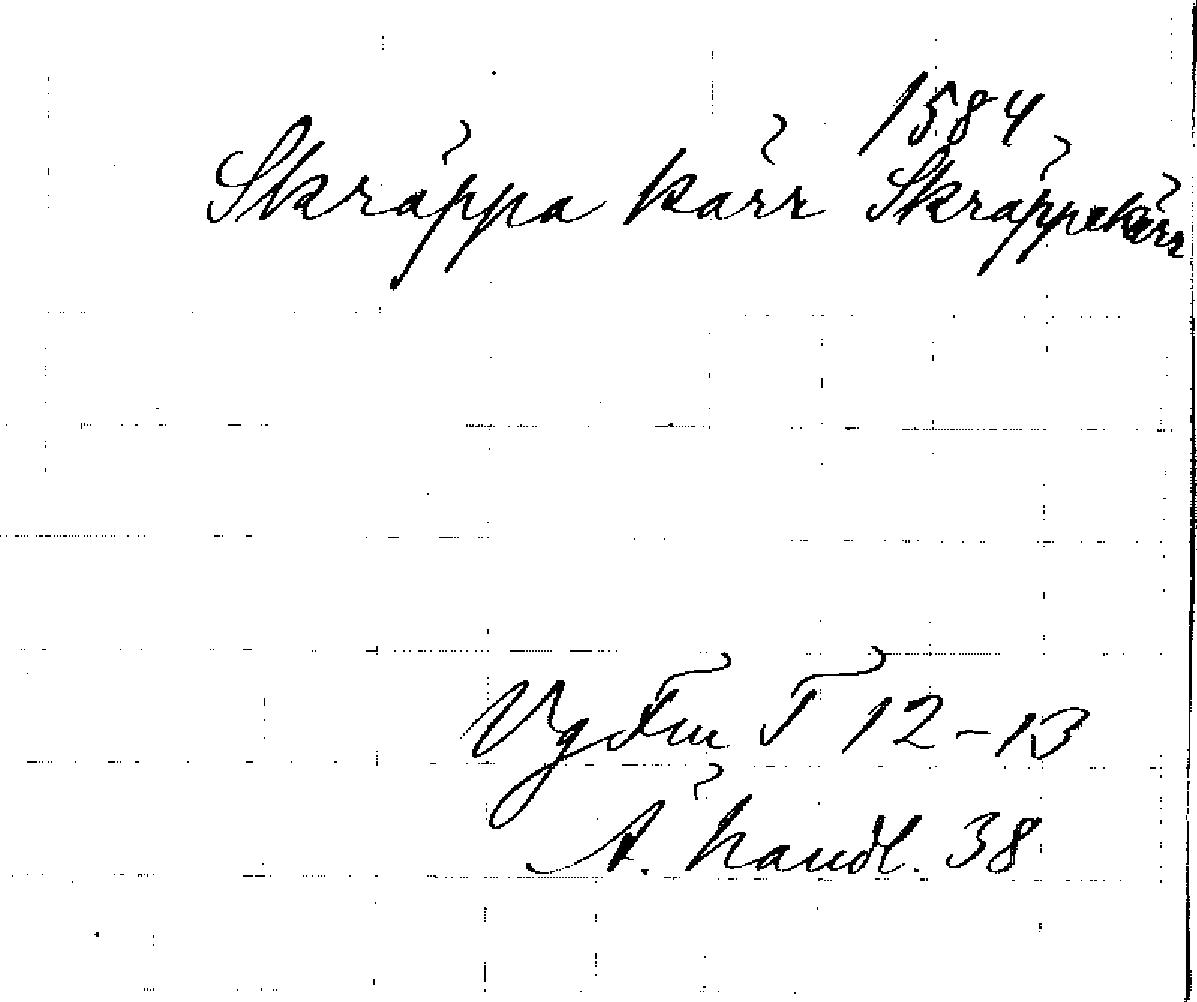 1584
Skräppa kärr Skräppekärr
Vg Fm I 12-13
Ä. handl. 38